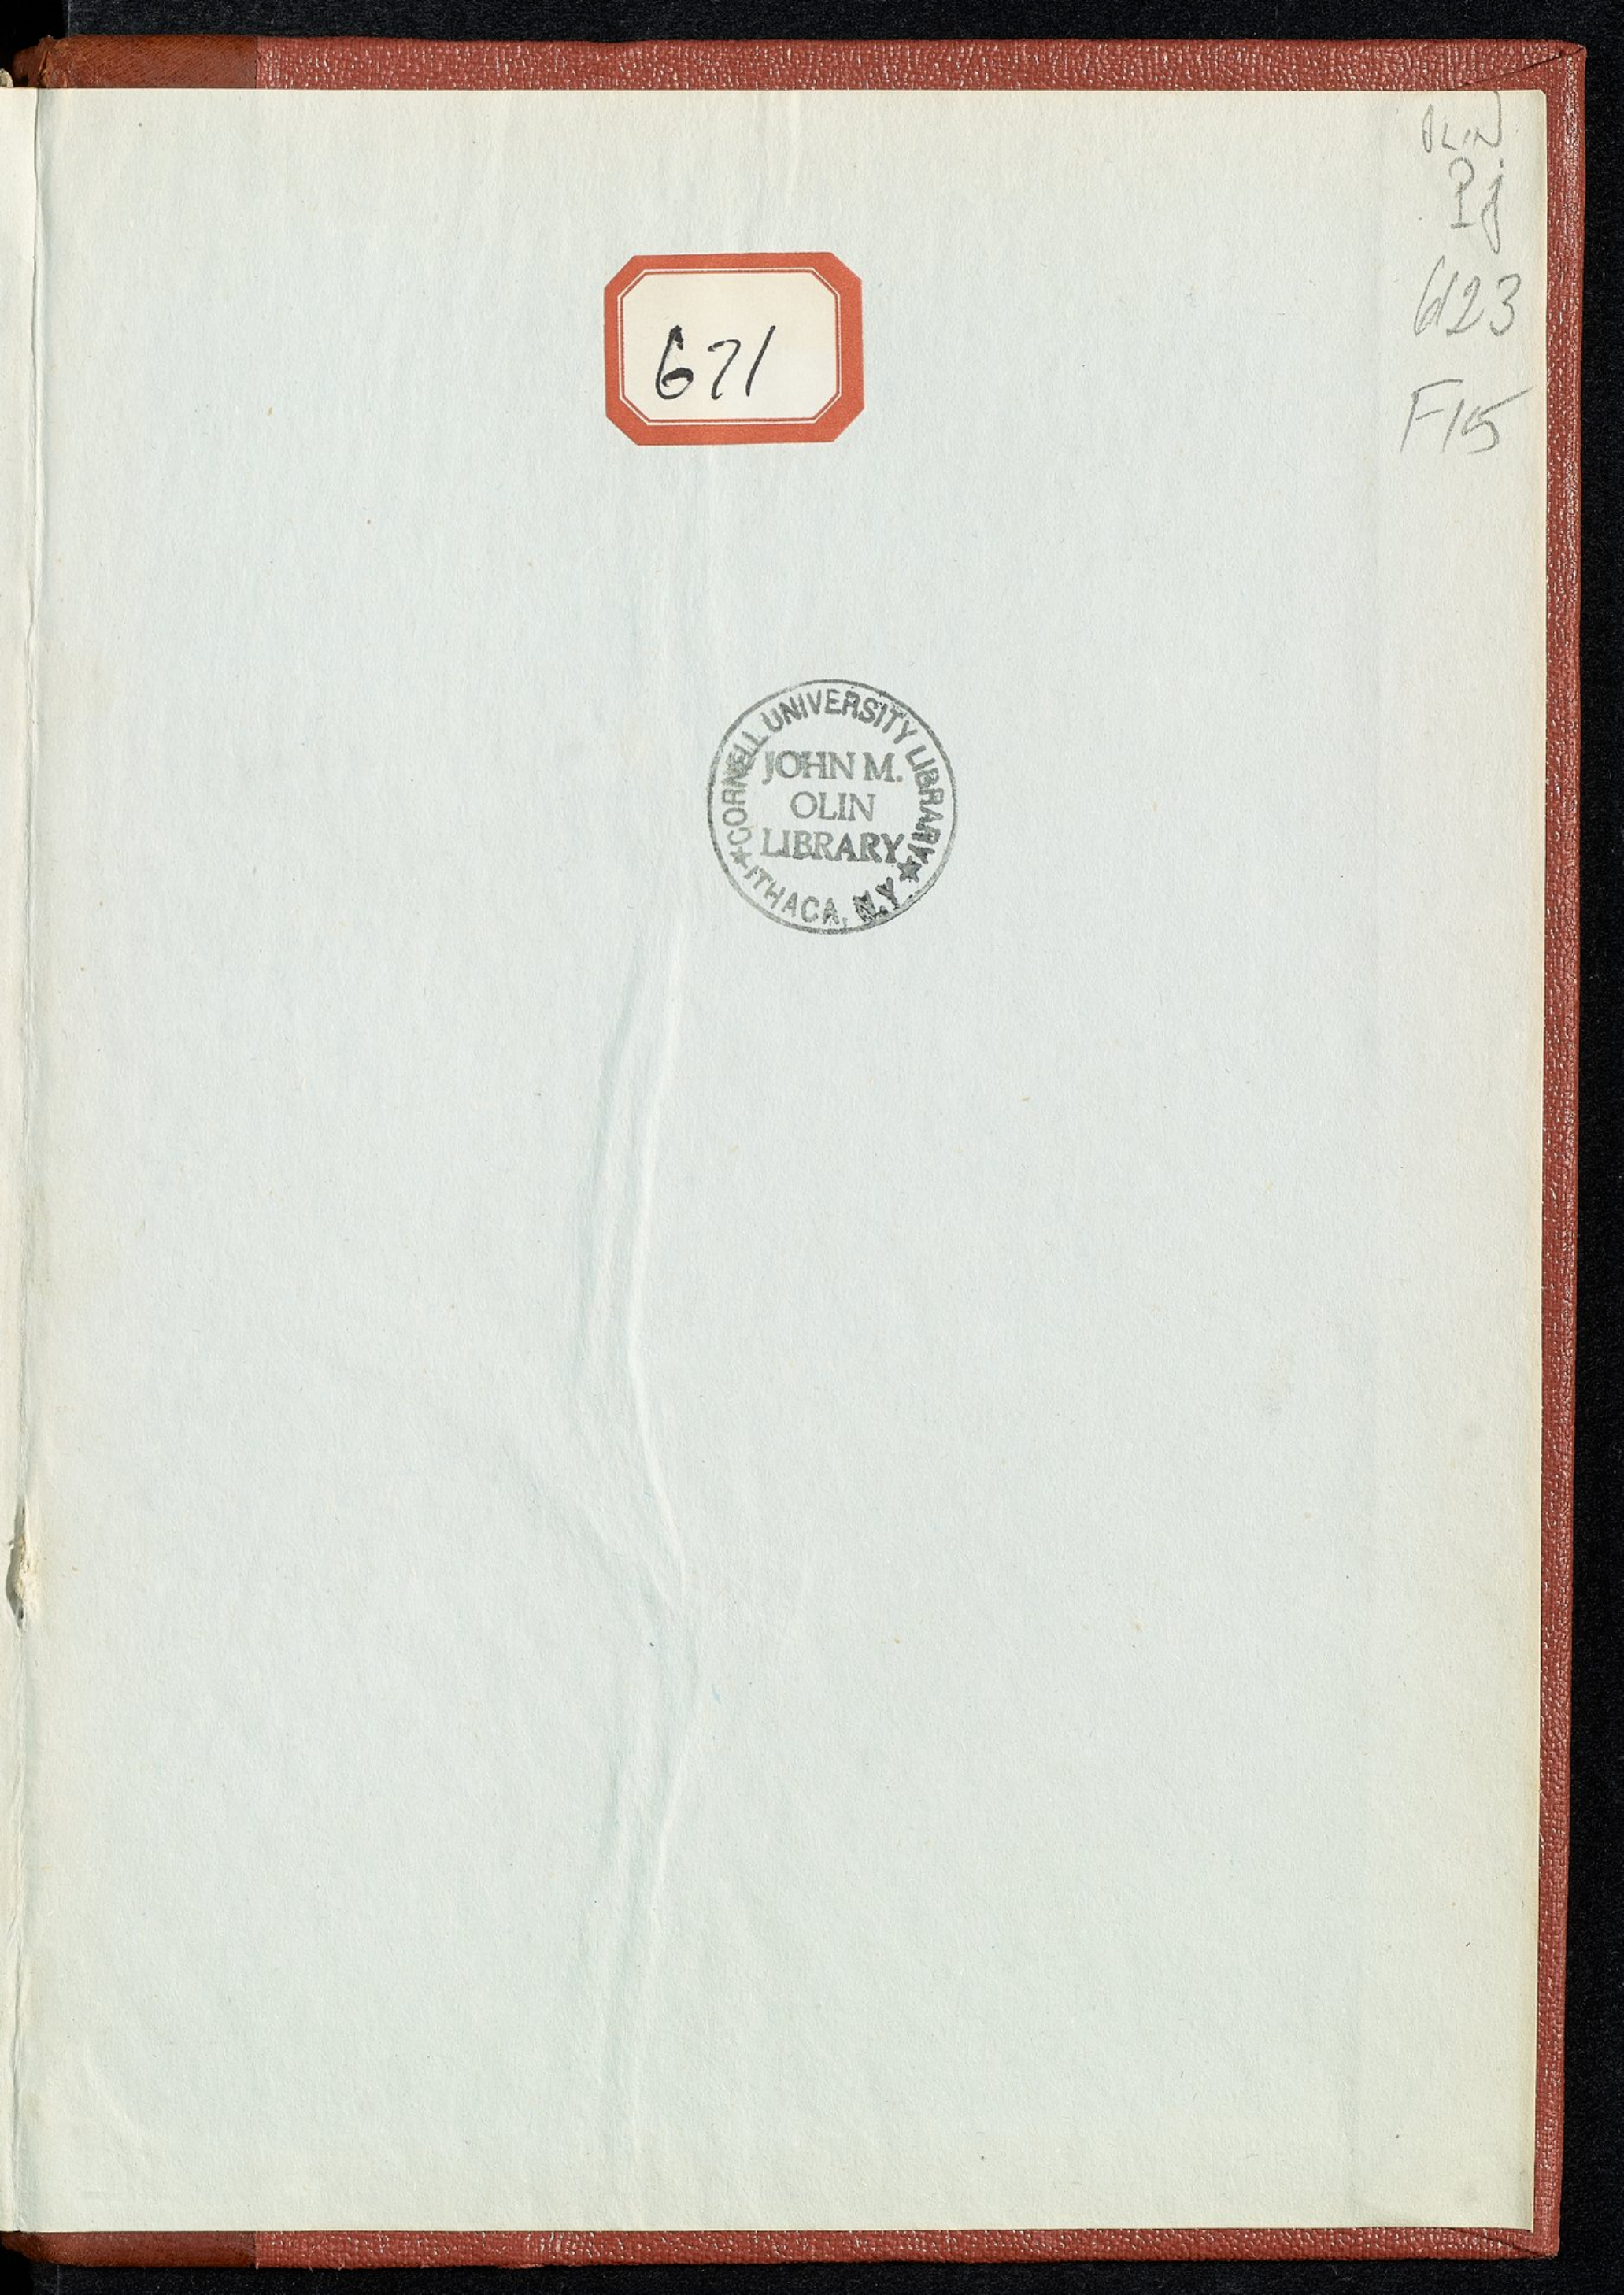 OLIN
PJ
6123
F15
671
CORNELL UNIVERSITY LIBRARY
JOHN M.
OLIN
LIBRARY
ITHACA, N.Y.